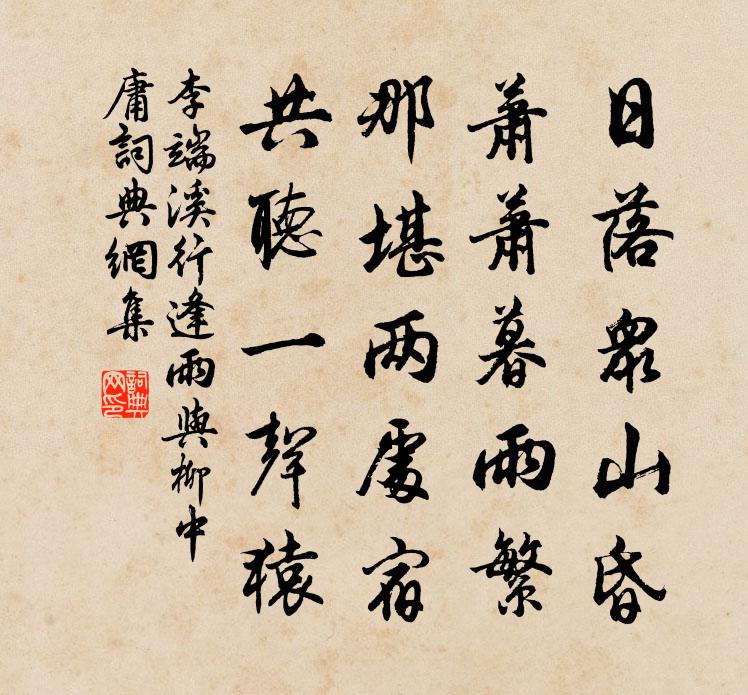 日落衆山昏
蕭蕭暮雨繁
那堪两處宿
共聽一聲猿
李端溪行逢雨與柳中
庸詞典網集
詞典
网印